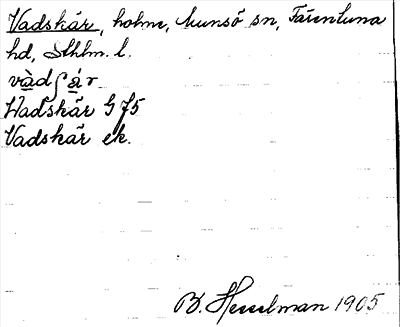 Vadskär, holme, Munsö sn, Färentuna
hd, Sthlm. l.
vàdʃä́r
Wadskär G 75
Vadskär ek.
B. Hesselman 1905